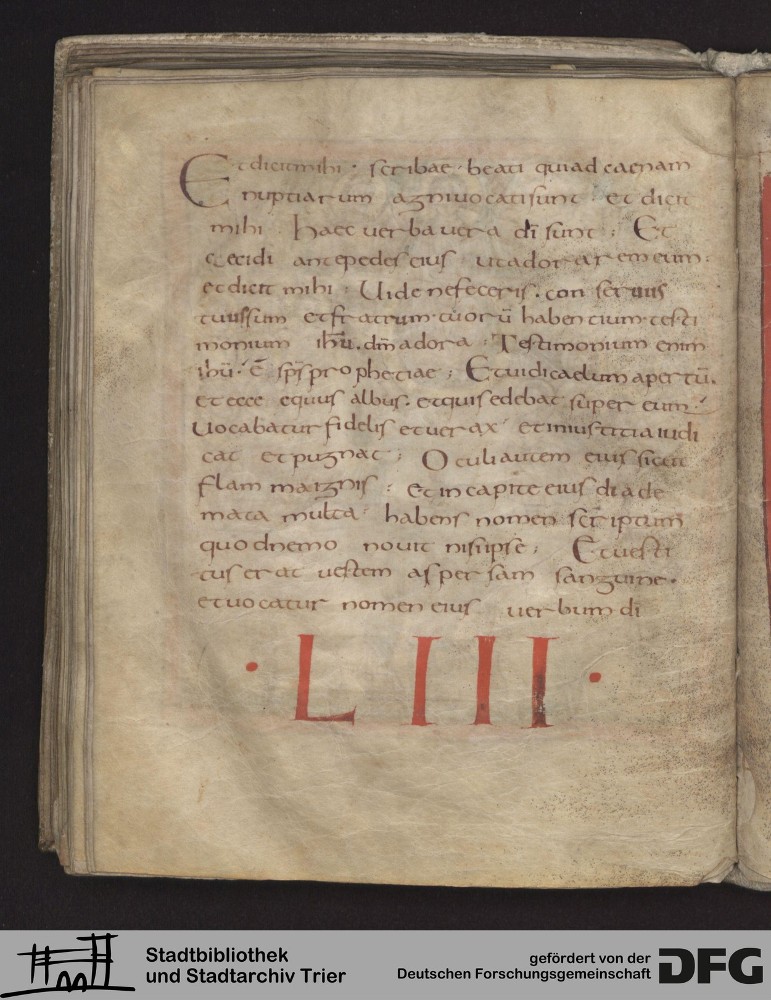 Et dicit mihi · scribae · beati qui ad caenam
nuptiarum agni vocati sunt · et dicit
mihi · haec uerba uera dī sunt : Et
cecidi ante pedes eius · ut adorarem eum :
et dicit mihi : Uide ne feceris . con seruus
tuus sum et fratrum tuorū habentium testi
monium ihū . dm̄ adora : Testimonium enim
ihū · ē sps̄ prophetiae ; Et uidi caelum apertū .
et ecce equus albus . et qui sedebat super eum ·
Uocabatur fidelis et uerax et in iustitia iudi
cat et pugnat : Oculi autem eius sicut
flamma ignis : et in capite eius diade
mata multa · habens nomen scriptum
quod nemo nouit nisi ipse ; Et uesti
tus erat uestem aspersam sanguine .
et uocatur nomen eius uerbum dī
· LIII ·
Stadtbibliothek
und Stadtarchiv Trier
gefördert von der
Deutschen Forschungsgemeinschaft
DFG